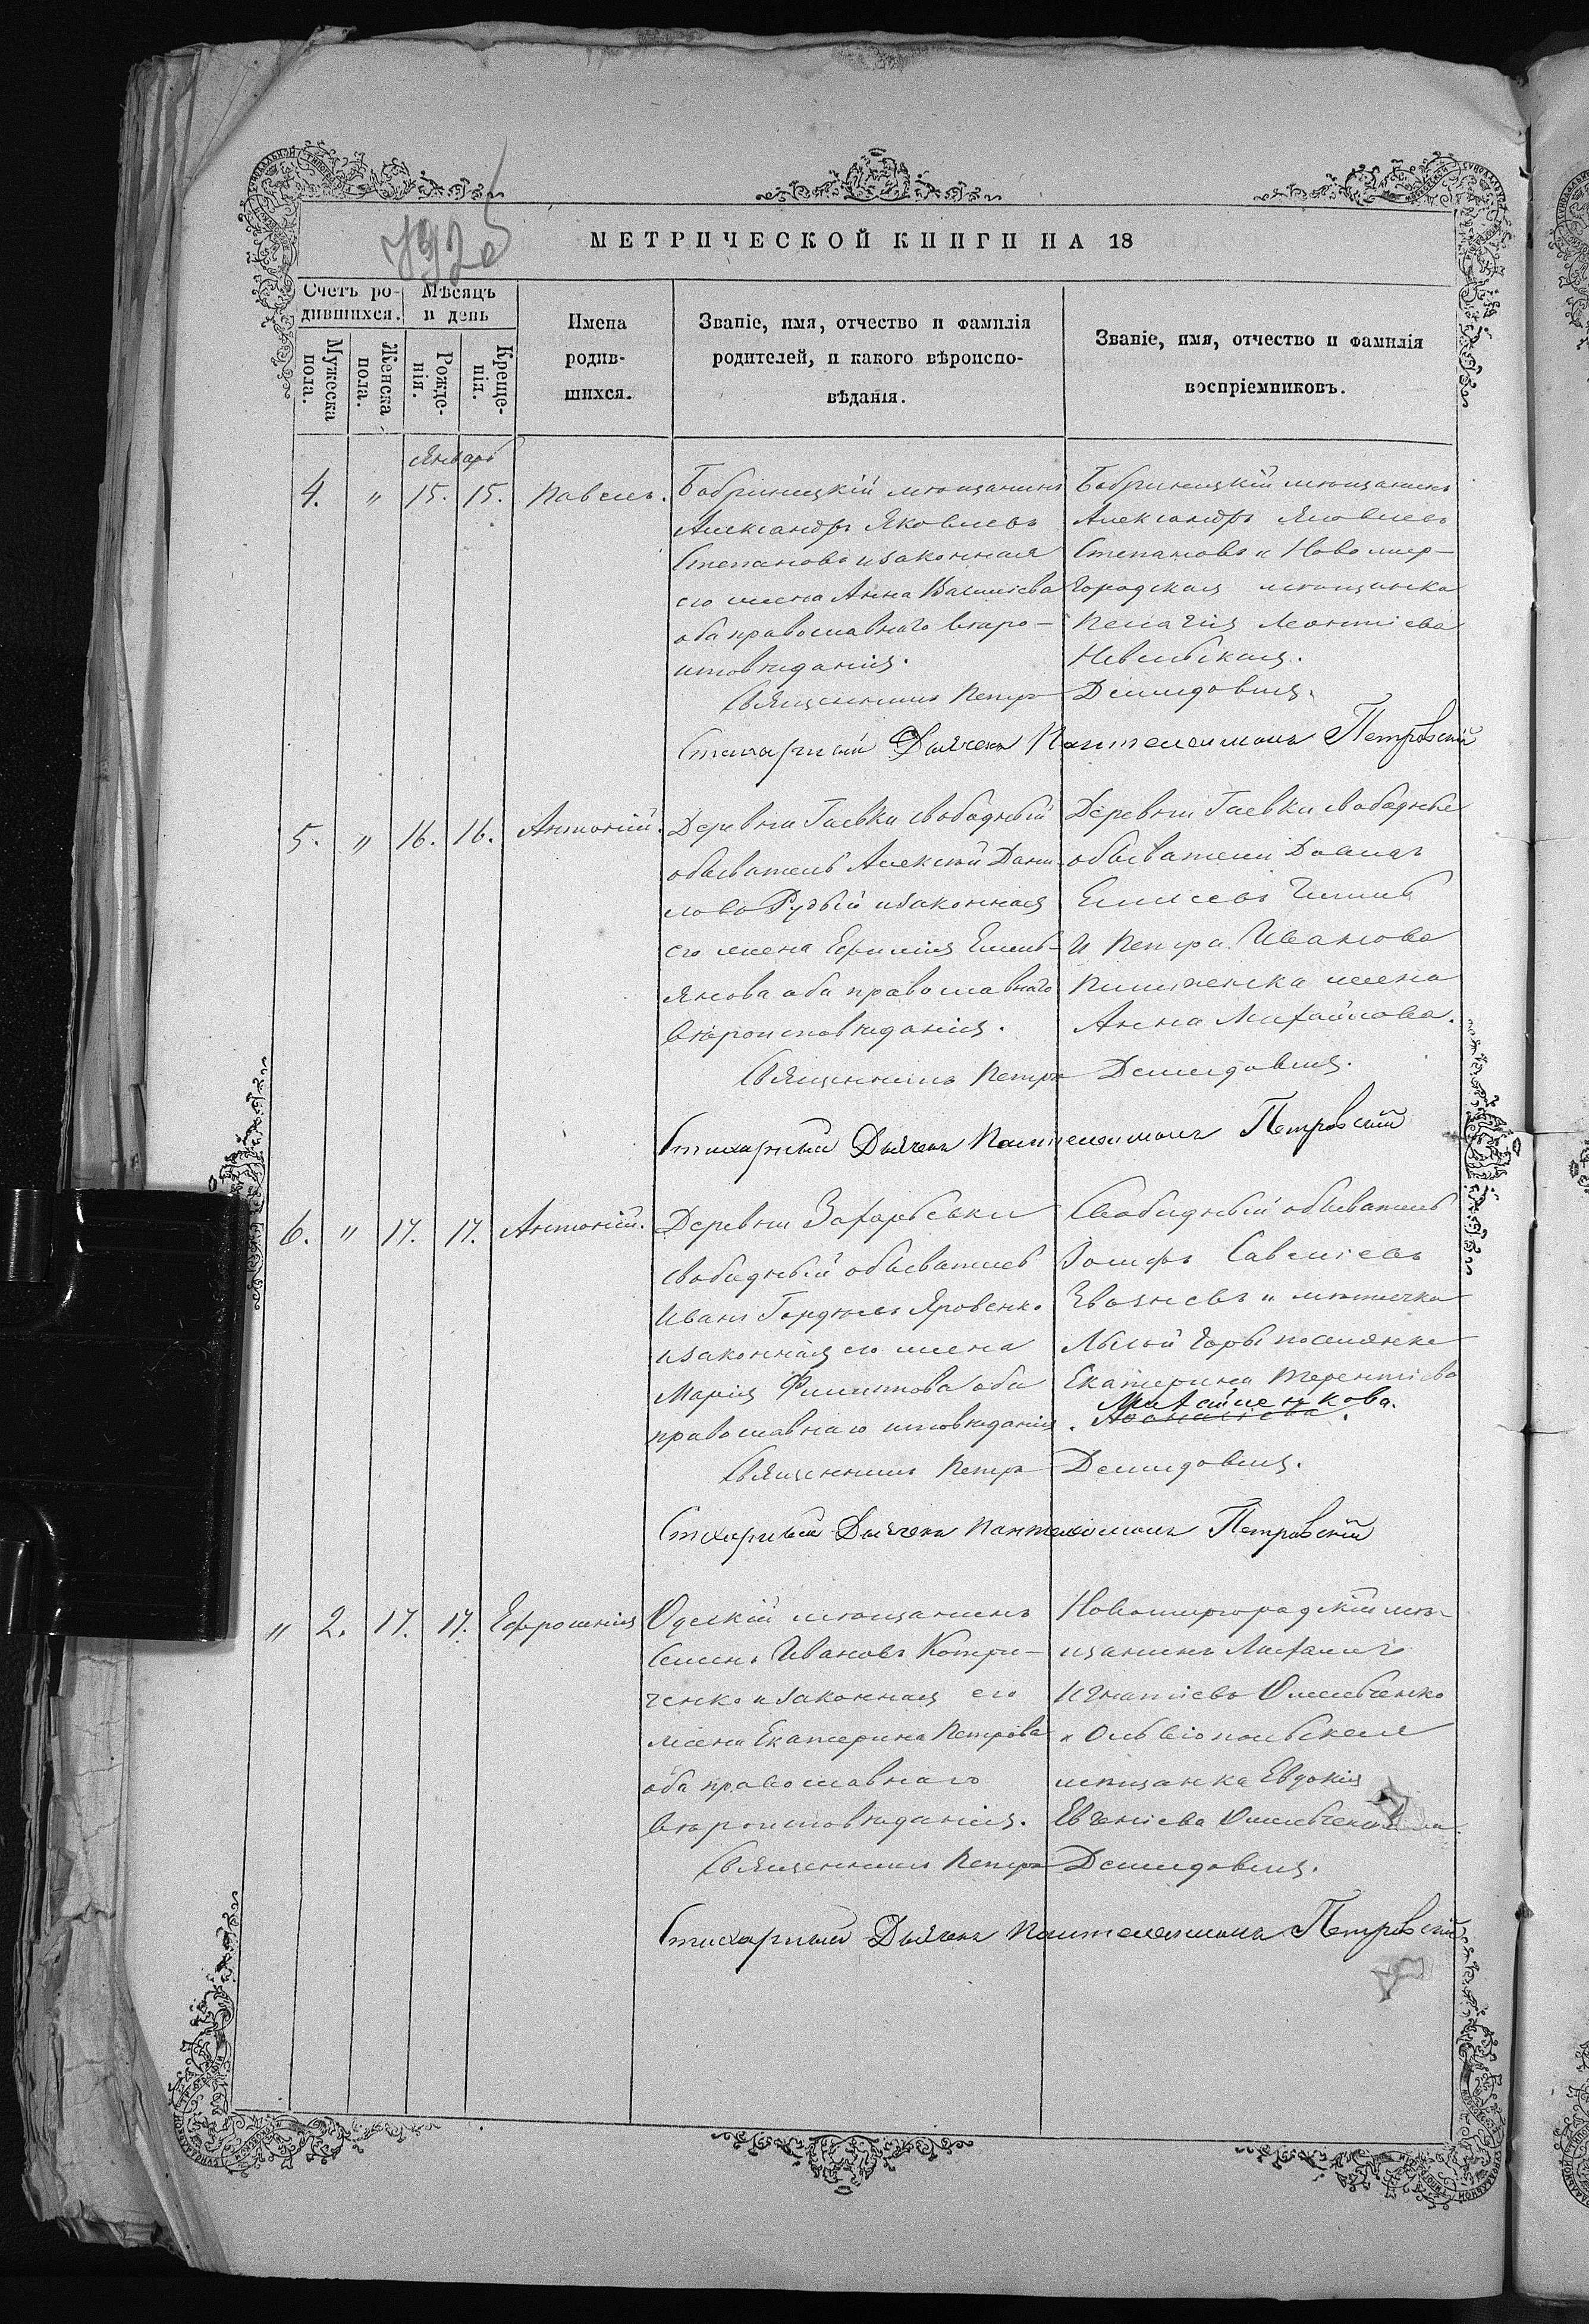 МЕТРИЧЕСКОЙ КНИГИ НА 18
Счетъ ро-
дившихся.
Мѣсяцъ
и день
Мужеска
пола.
Женска
пола.
Рожде-
нія.
Креще-
нія.
Имена
родив-
шихся.
Званіе, имя, отчество и фамилія
родителей, и какого вѣроиспо-
вѣданія.
Званіе, имя, отчество и фамилія
воспріемниковъ.
Январь
4. " 15. 15. Павелъ.
Бобринецкій мѣщанинъ
Александръ Яковлевъ
Степановъ и законная
его жена Анна Василіева
оба православнаго вѣро-
исповѣданія.
Бобринецкій мѣщанинъ
Александръ Яковлевъ
Степановъ и Новомир-
городская мѣщанка
Пелагія Леонтіева
Невельская.
Священникъ Петръ Демидовичъ.
Стихарный Дьячекъ Пантелеимонъ Петровскій
5. " 16. 16. Антоній.
Деревни Гаевки свободный
обыватель Алексѣй Дани-
ловъ Рудый и законная
его жена Ефимія Емель-
янова оба православнаго
вѣроисповѣданія.
Деревни Гаевки свободные
обыватели
Елисеевъ
и Петра Иванова
жена
Анна Михайлова.
Священникъ Петръ Демидовичъ.
Стихарный Дьячекъ Пантелеимонъ Петровскій
6. " 17. 17. Антоній.
Деревни Захарьевки
свободный обыватель
Иванъ Гордѣевъ Яровенко
и законная его жена
Марія Филиппова оба
православнаго исповѣданія.
Свободный обыватель
Іосифъ Савеліевъ
и мѣстечка
Лысой Горы поселянка
Екатерина Терентіева
Михайленкова.
Священникъ Петръ Демидовичъ.
Стихарный Дьячекъ Пантелеимонъ Петровскій
" 2. 17. 17. Ефросинія
Одескій мѣщанинъ
Семенъ Ивановъ Котри-
ченко и законная его
жена Екатерина Петрова
оба православнаго
вѣроисповѣданія.
Новомиргородскій мѣ-
щанинъ Михаилъ
Игнатіевъ Омельченко
и Ольвіопольская
мѣщанка Евдокія
Евгеніева
Священникъ Петръ Демидовичъ.
Стихарный Дьячекъ Пантелеимонъ Петровскій